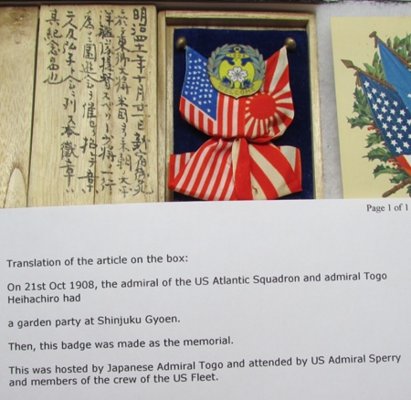 明治四十一年十月廿一日新宿御苑
東郷大将米国 来朝 太平
洋艦隊提督スペリー 将一行
園遊会ヲ催
徽章
其紀念品也
Page 1 of 1
Translation of the article on the box:
On 21st Oct 1908, the admiral of the US Atlantic Squadron and admiral Togo
Heihachiro had
a garden party at Shinjuku Gyoen.
Then, this badge was made as the memorial.
This was hosted by Japanese Admiral Togo and attended by US Admiral Sperry
and members of the crew of the US Fleet.